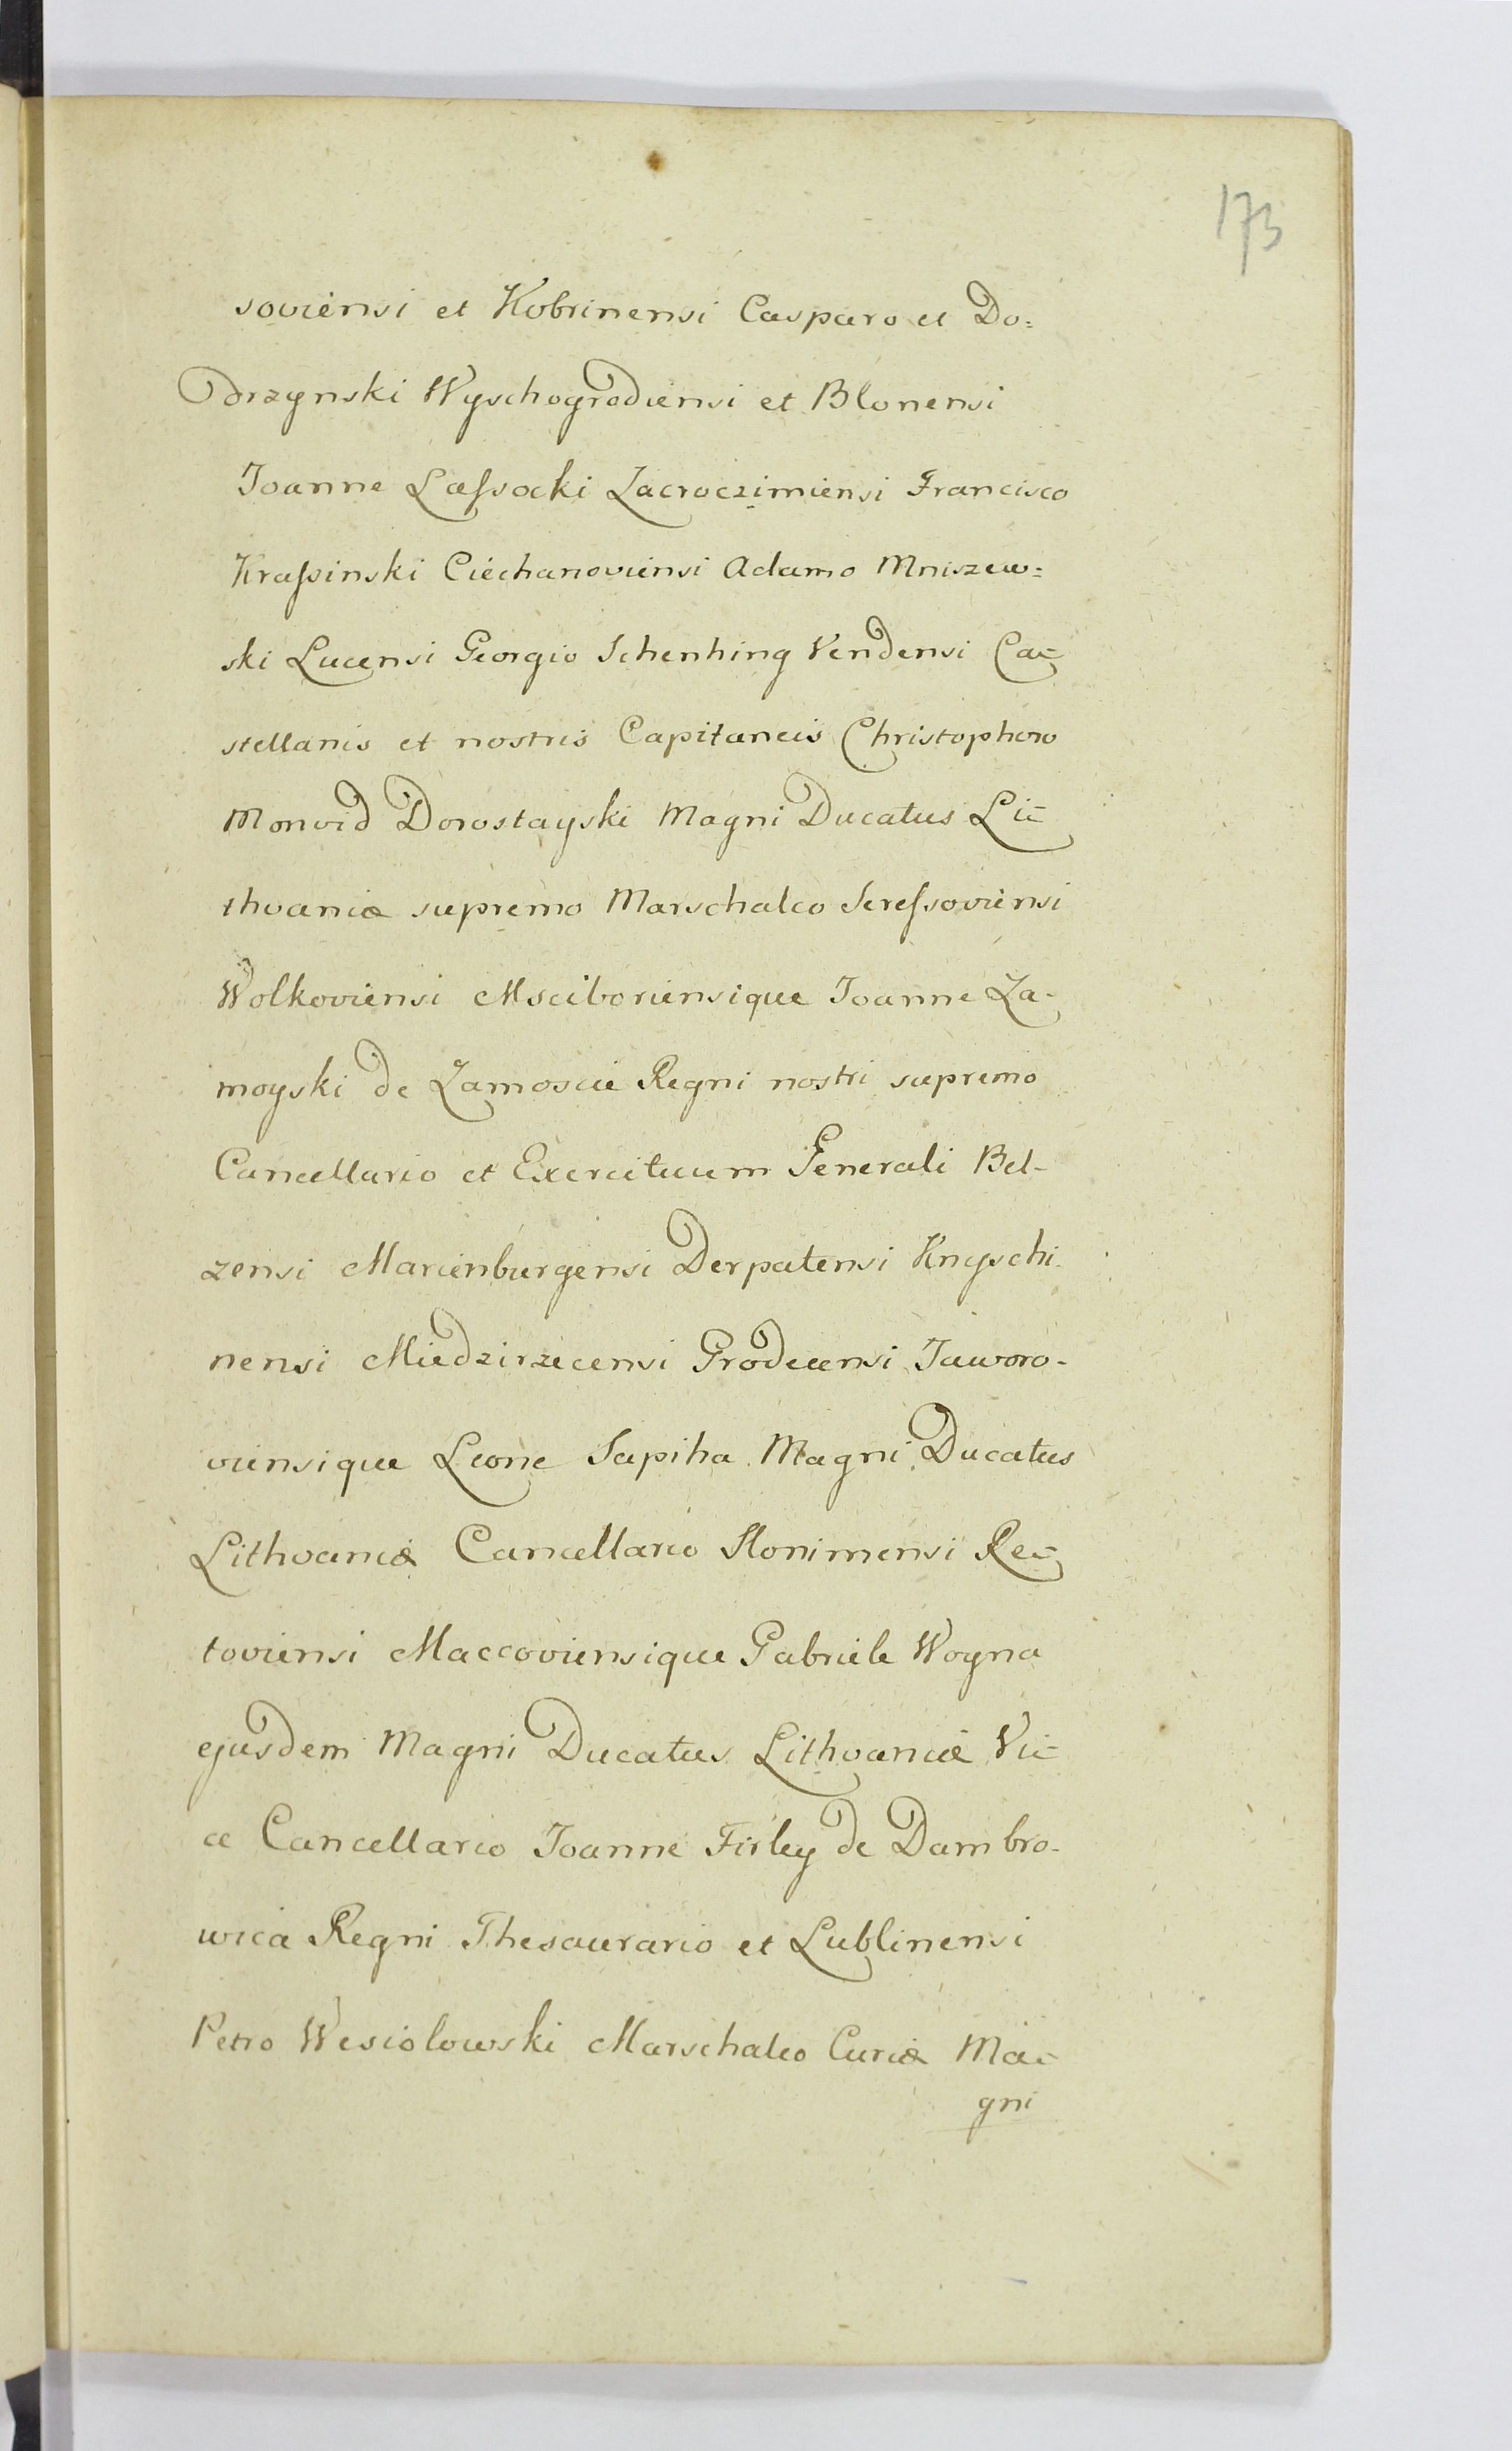 173
soviensi et Kobrinensi Casparo et Do=
drzynski Wyschogrodiensi et Blonensi
Joanne Laſsocki Zacroczimiensi Francisco
Kraſsinski Ciechanoviensi Adamo Mniszew=
ski Lucensi Georgio Schenhing Vendensi Ca=
stellanis et nostris Capitaneis Christophoro
Monvid Dorostayski Magni Ducatus Li=
thvaniæ supremo Marschalco Sereſsoviensi
Wolkoviensi Msciboriensique Joanne Za-
moyski de Zamoscie Regni nostri supremo
Cancellario et Exercituum Generali Bel-
zensi Marienburgensi Derpatensi Knyschi-
nensi Miedzirzecensi Grodecensi Jaworo-
viensique Leone Sapiha Magni Ducatus
Lithvaniæ Cancellario Slonimensi Re=
toviensi Maccoviensique Gabriele Woyna
ejusdem Magni Ducatus Lithvaniæ Vi=
ce Cancellario Joanne Firley de Dambro-
wica Regni Thesaurario et Lublinensi
Petro Wesiolowski Marschalco Curiæ Ma=
gni